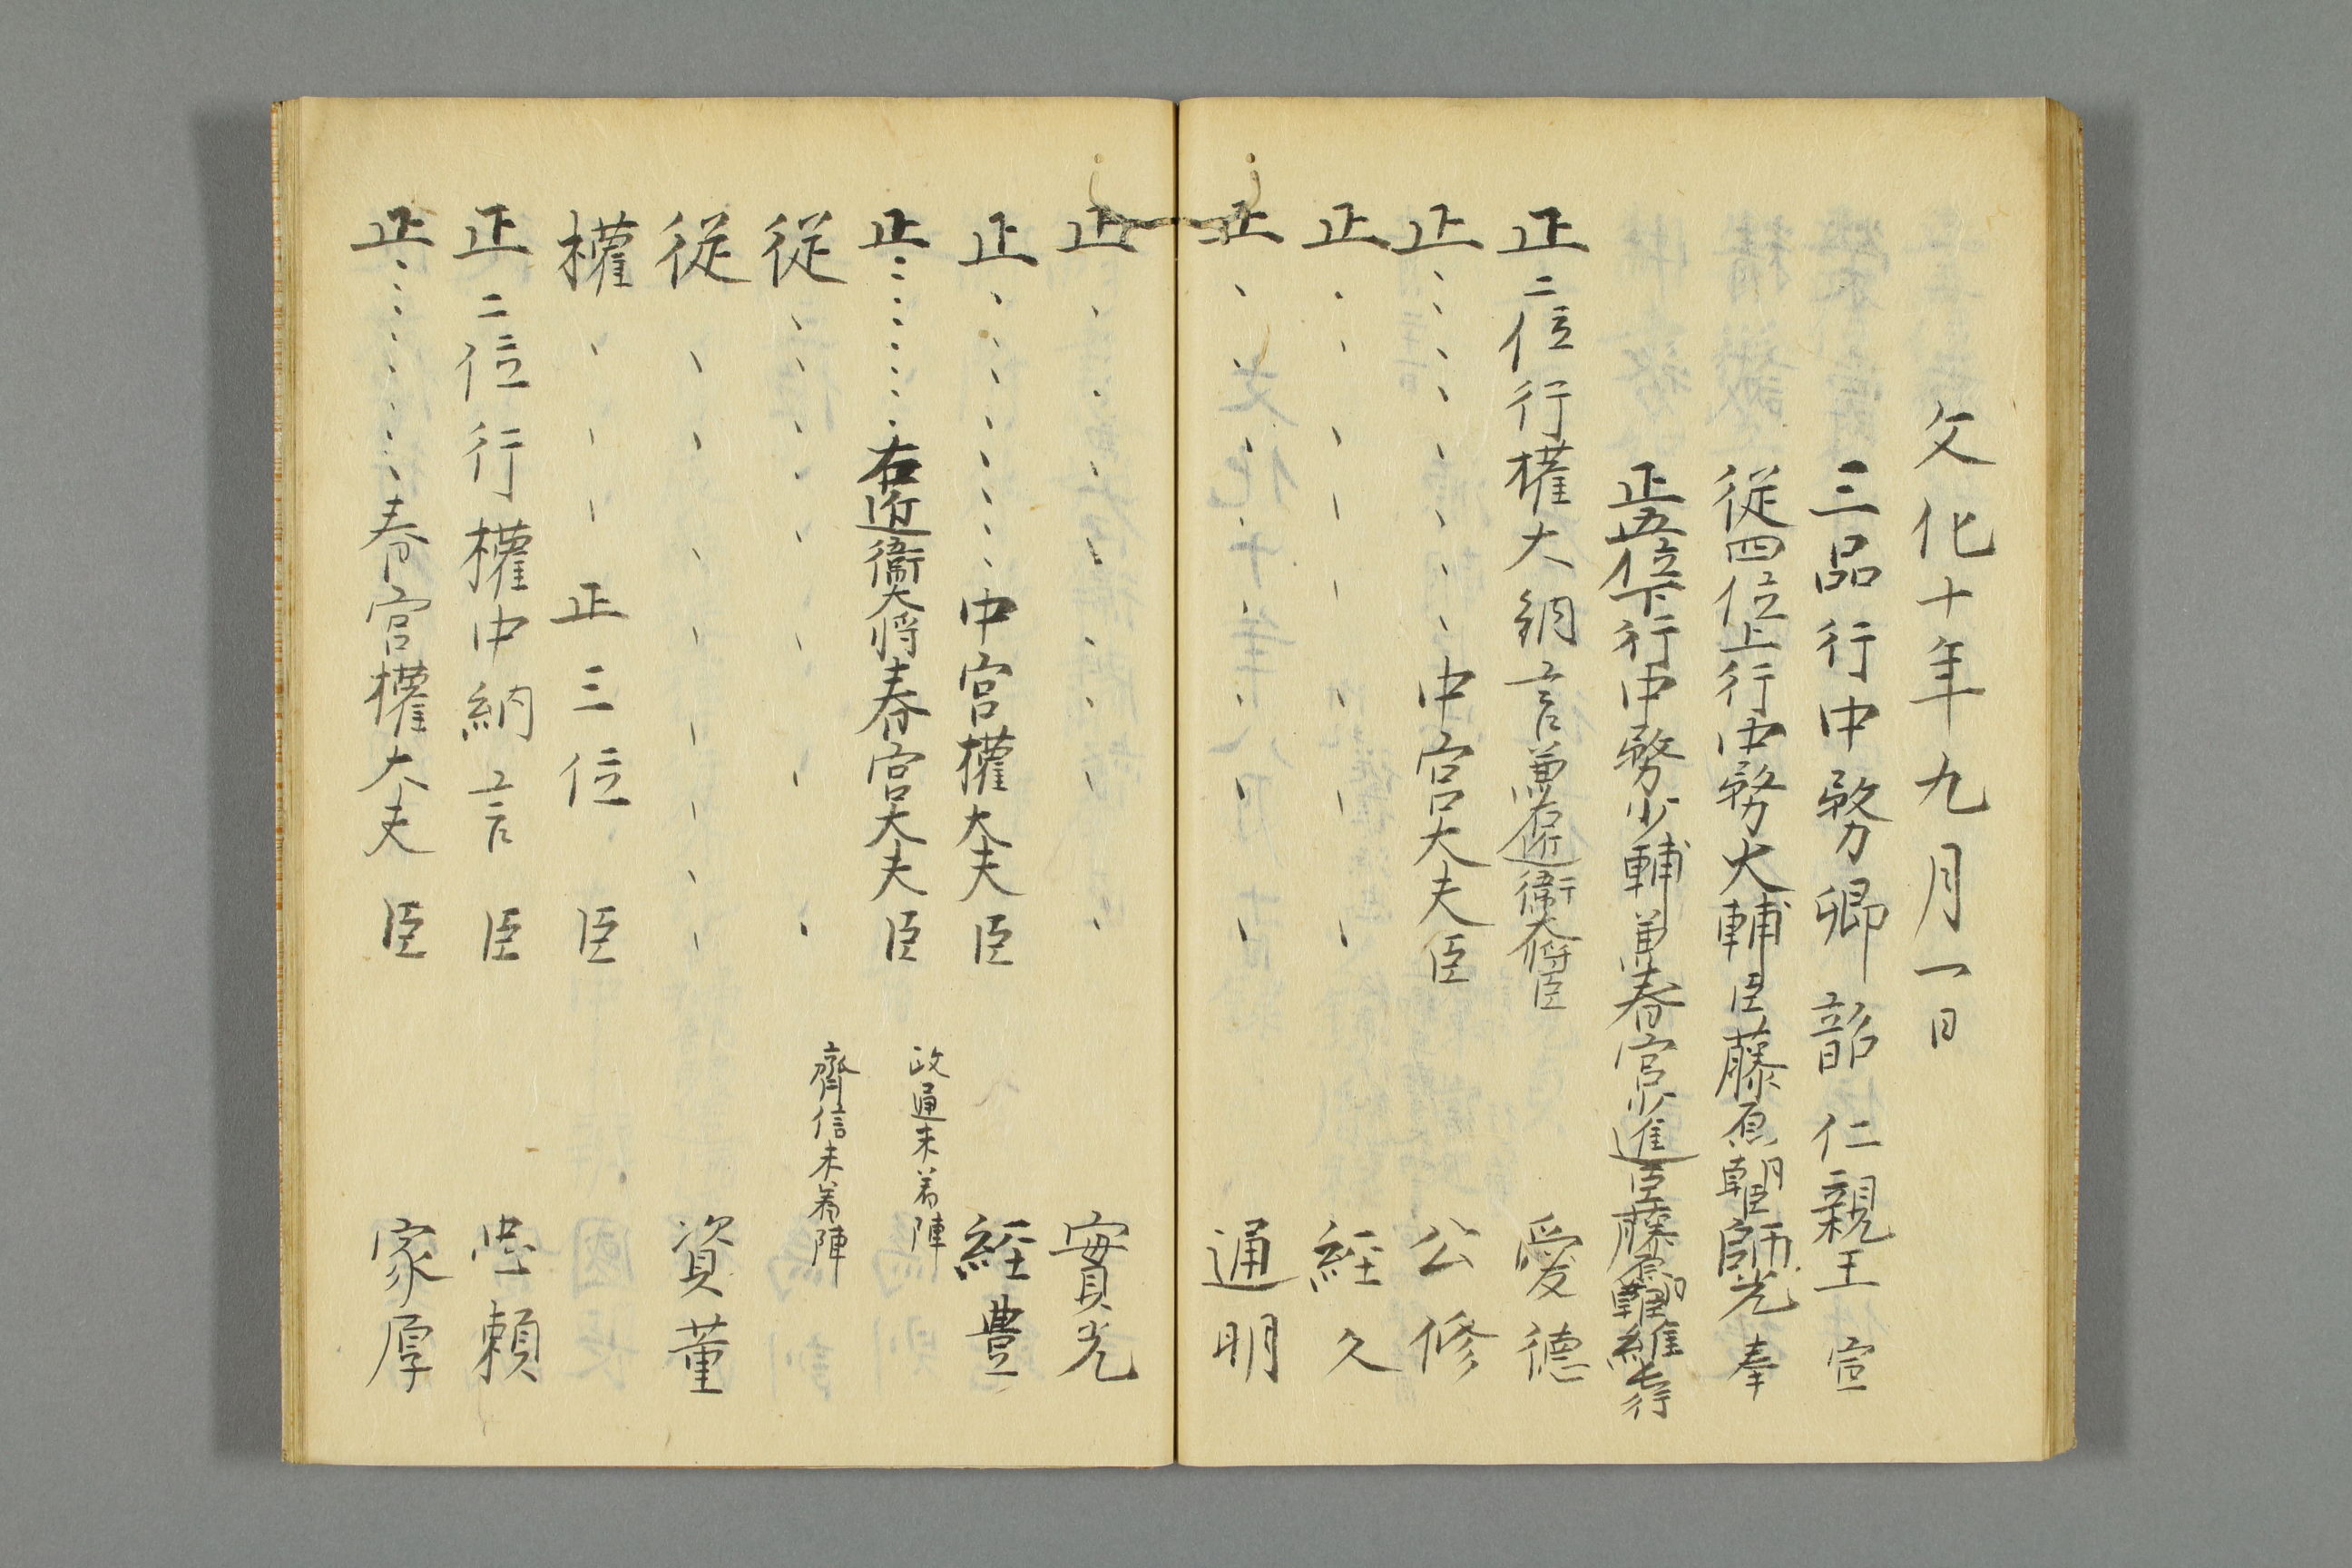 文化十年九月一日
三品行中務卿韶仁親王宣
従四位上行中務大輔臣藤原朝臣師光奉
正五位下行中務少輔兼春宮少進臣藤原朝臣維行
正二位行權大納言兼右近衞大将臣 愛德
正、、、、、、、中宮大夫臣 公修
正、、、、、、、、 経久
正、、、、、、、、 通明
正、、、、、、、、 實光
正、、、、、、中宮權大夫臣 経豊
正、、、、、、右近衞大将春宮大夫臣 政通未着陣
従、、、、、、、、 齊信未着陣
従、、、、、、、、 資董
權、、、正三位臣
正二位行權中納言臣 忠頼
正、、、、、、春宮權大夫臣 家厚